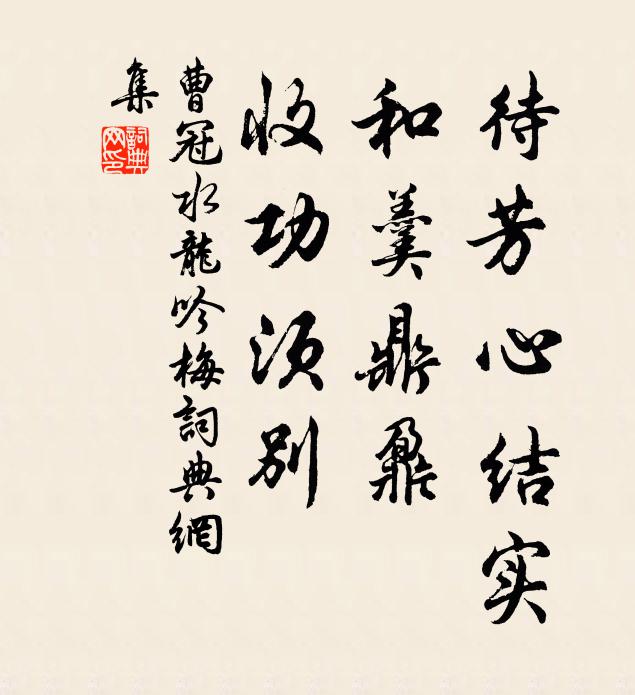 待芳心结实
和羹鼎鼐
收功须别
曹冠水龍吟梅詞典網
集
詞典網印